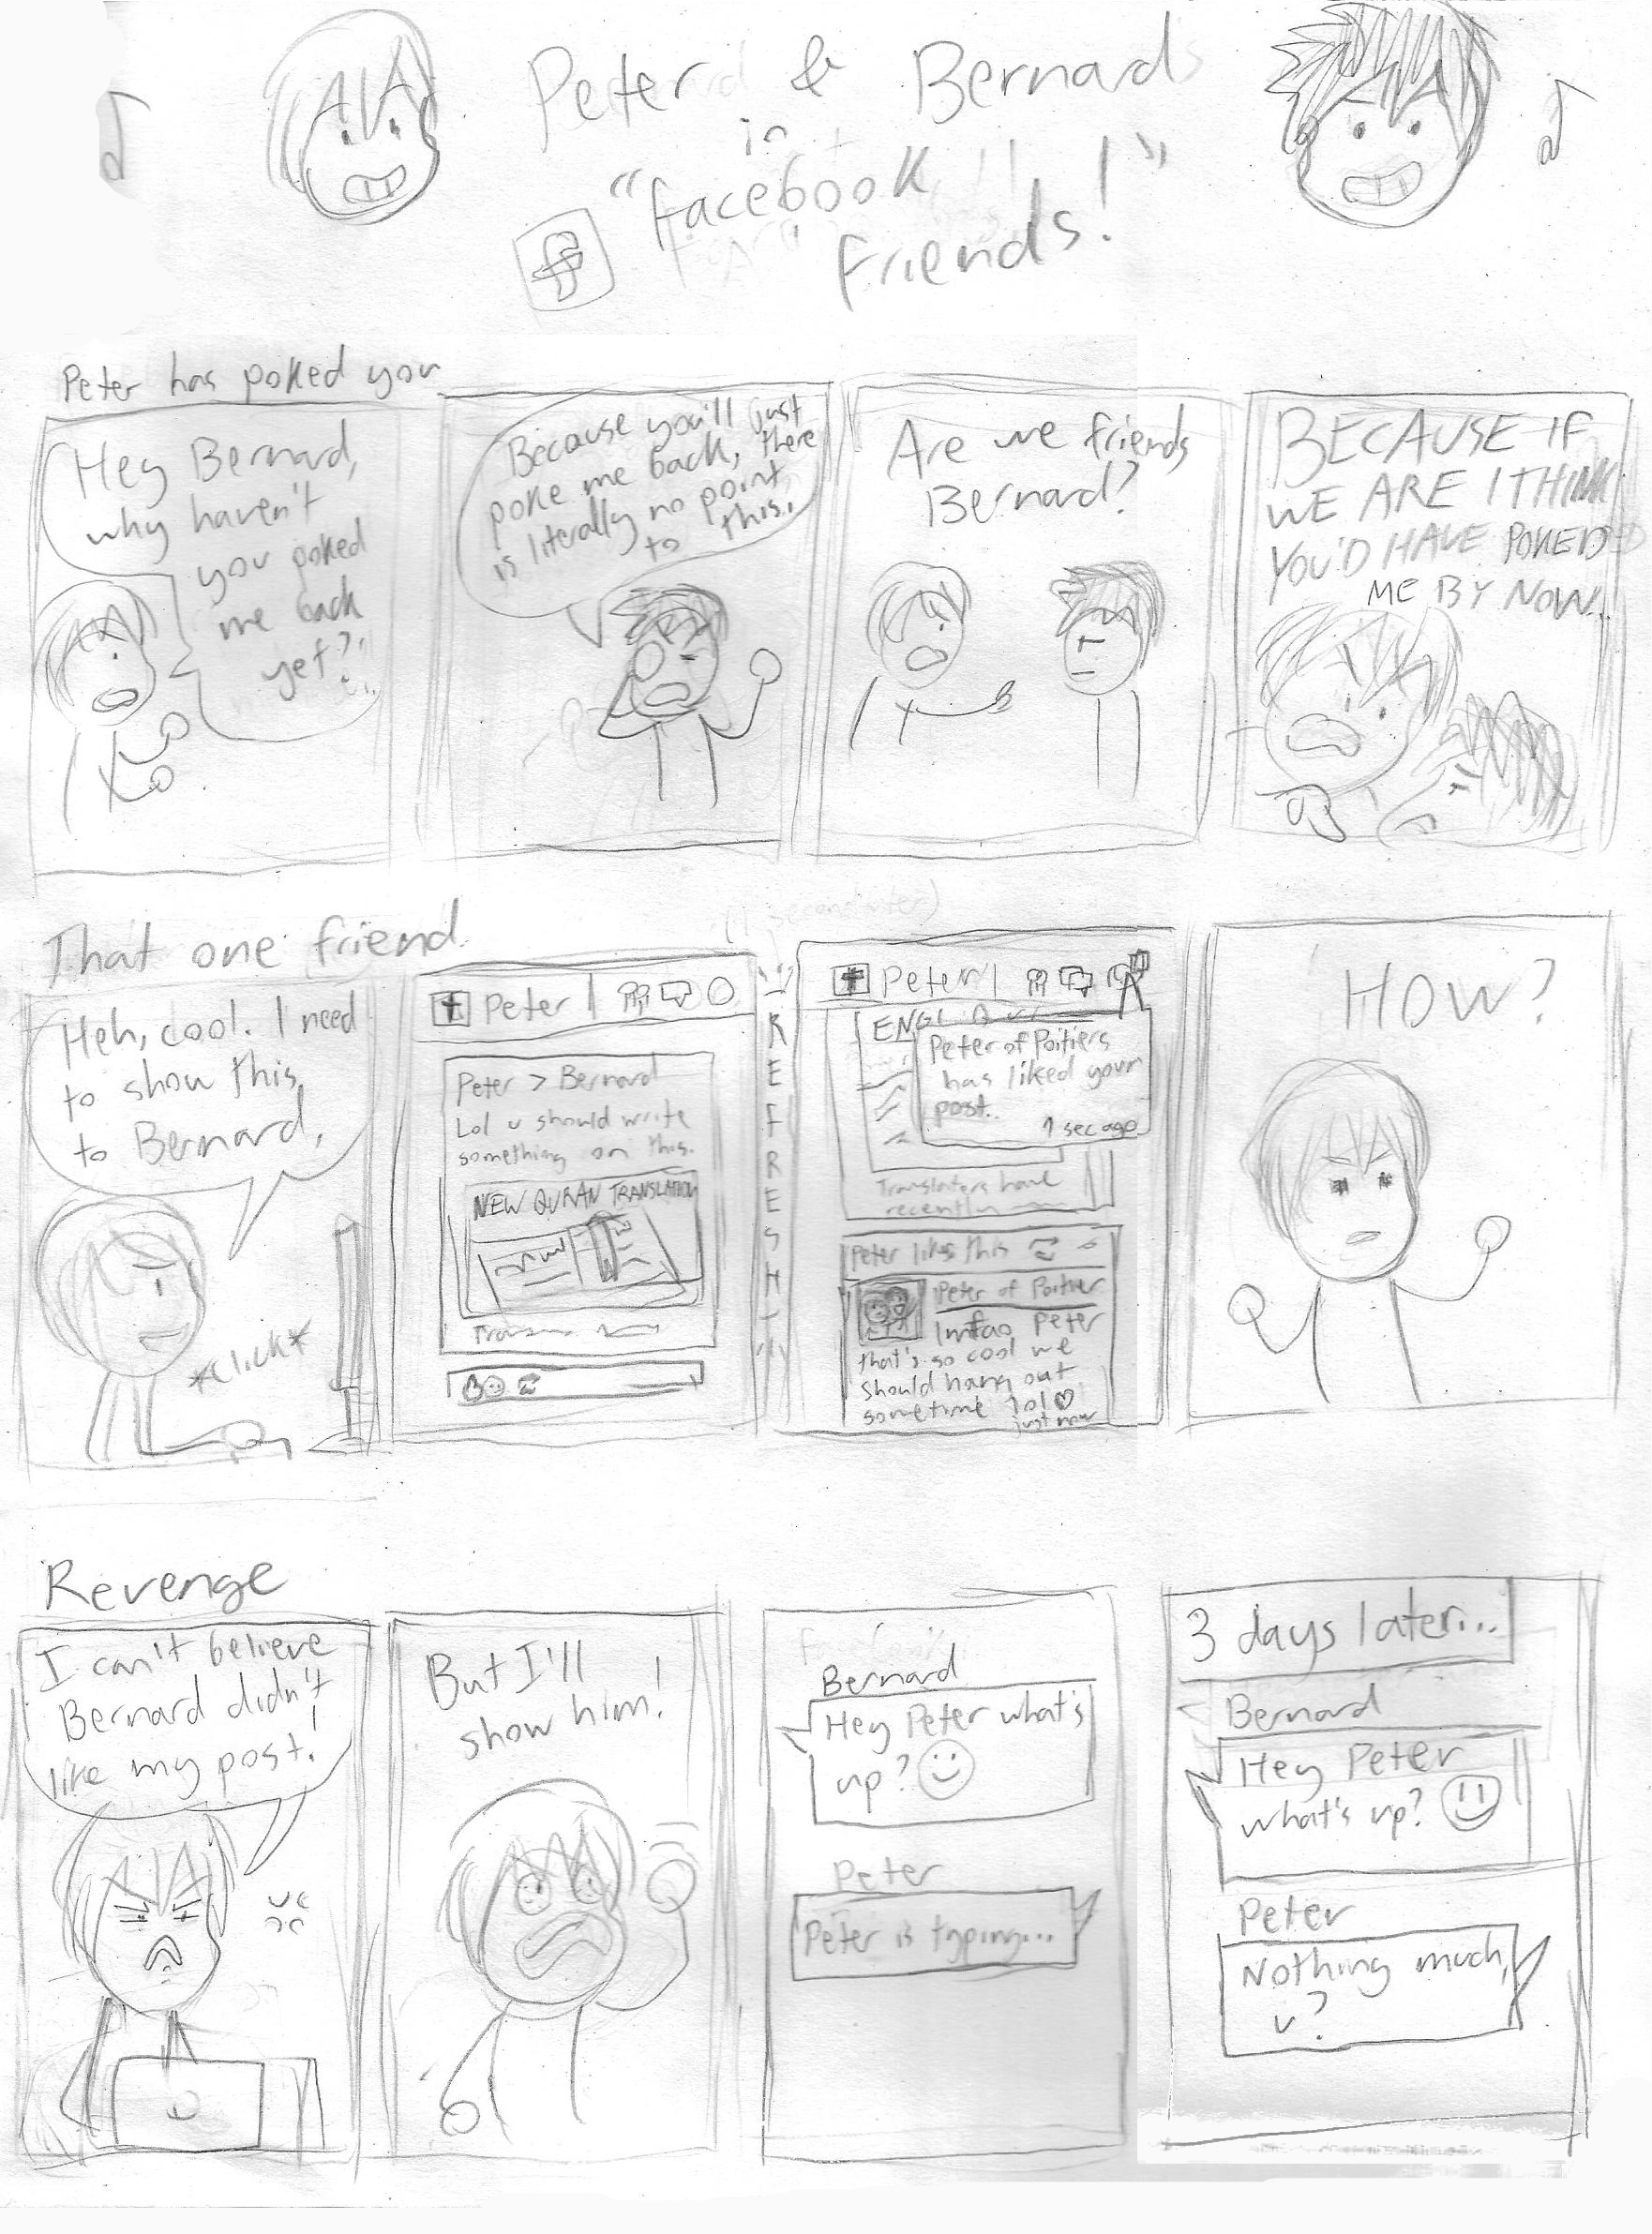 Peter & Bernard
in
"facebook
friends!"
f
Peter has poked you
Hey Bernard,
why haven't
you poked
me back
yet?
Because you'll just
poke me back, there
is literally no point
to this.
Are we friends
Bernard?
BECAUSE IF
WE ARE I THINK
YOU'D HAVE POKED
ME BY NOW...
That one friend
Heh, cool. I need
to show this
to Bernard.
*click*
Peter
Peter > Bernard
Lol u should write
something on this.
NEW QURAN TRANSLATION
(1 second later)
REFRESH
Peter
ENGL
Peter of Poitiers
has liked your
post..
1 sec ago
Translaters have
recently
Peter likes this
Peter of Poitier
lmfao Peter
that's so cool we
should hang out
sometime lol ♡
just now
HOW?
Revenge
I can't believe
Bernard didn't
like my post!
But I'll
show him!
Bernard
Hey Peter what's
up? ☺
Peter
Peter is typing...
3 days later...
Bernard
Hey Peter
what's up? ☺
Peter
Nothing much,
u?